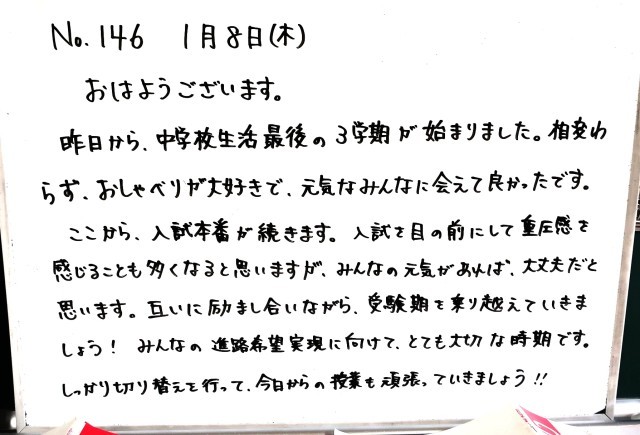 No.146 1月8日(木)
おはようございます。
昨日から、中学校生活最後の3学期が始まりました。相変わ
らず、おしゃべりが大好きで、元気なみんなに会えて良かったです。
ここから、入試本番が続きます。入試を目の前にして重圧感を
感じることも多くなると思いますが、みんなの元気があれば、大丈夫だと
思います。互いに励まし合いながら、受験期を乗り越えていきま
しょう！ みんなの進路希望実現に向けて、とても大切な時期です。
しっかり切り替えを行って、今日からの授業も頑張っていきましょう!!